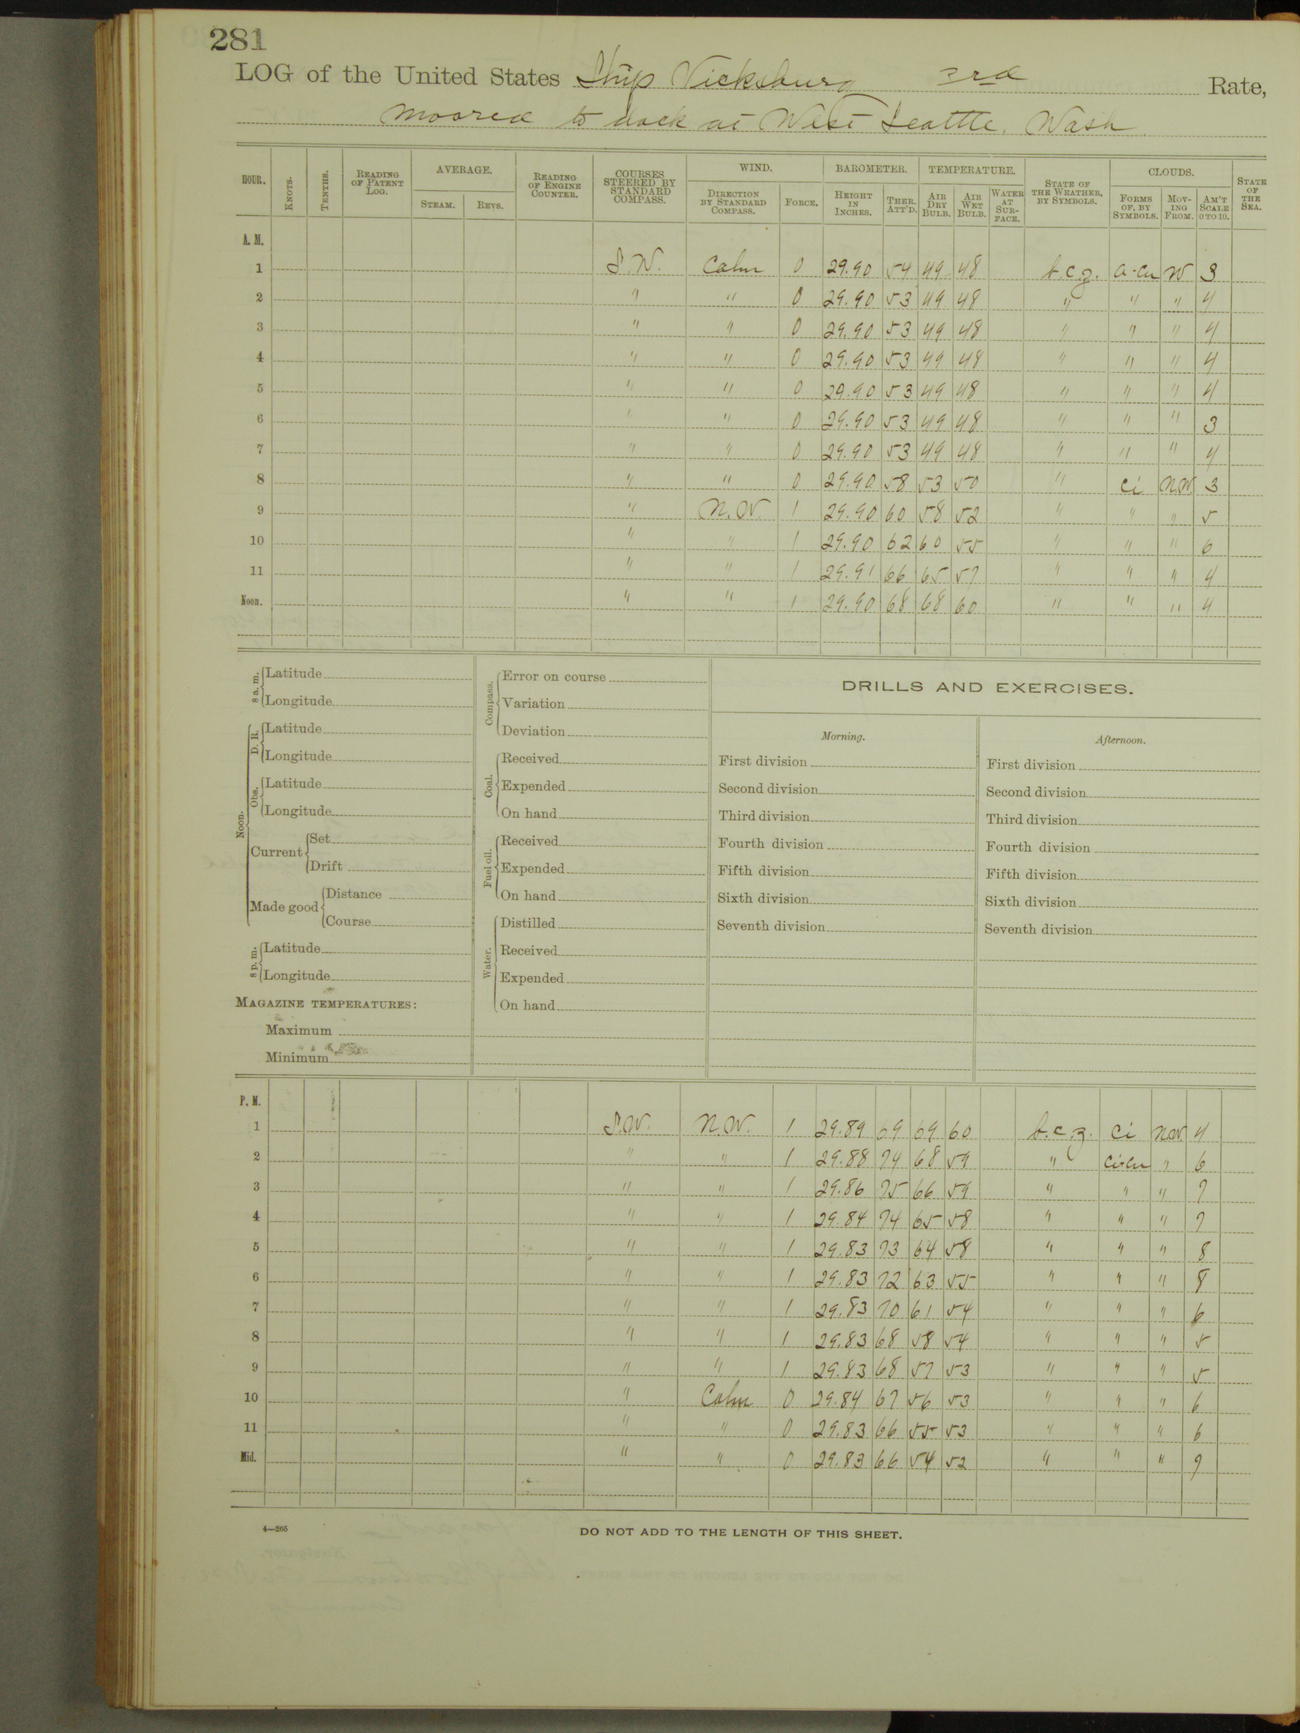 281
LOG of the United States Ship Vicksburg 3rd Rate,
Moored to dock at West Seattle. Wash
HOUR. KNOTS. TENTHS. READING OF PATENT LOG. AVERAGE. STEAM. REVS. READING OF ENGINE COUNTER. COURSES STEERED BY STANDARD COMPASS. WIND. DIRECTION BY STANDARD COMPASS. FORCE. BAROMETER. HEIGHT IN INCHES. THER. ATT'D. TEMPERATURE. AIR DRY BULB. AIR WET BULB. WATER AT SURFACE. STATE OF THE WEATHER, BY SYMBOLS. CLOUDS. FORMS OF, BY SYMBOLS. MOVING FROM. AM'T SCALE 0 TO 10. STATE OF THE SEA.
A. M.
1 S.W. Calm 0 29.90 54 49 48 b.c.z. a-cu W 3
2 " " 0 29.90 53 49 48 " " " 4
3 " " 0 29.90 53 49 48 " " " 4
4 " " 0 29.90 53 49 48 " " " 4
5 " " 0 29.90 53 49 48 " " " 4
6 " " 0 29.90 53 49 48 " " " 3
7 " " 0 29.90 53 49 48 " " " 4
8 " " 0 29.90 58 53 50 " Ci N.W 3
9 " N.W. 1 29.90 60 58 52 " " " 5
10 " " 1 29.90 62 60 55 " " " 6
11 " " 1 29.91 66 65 57 " " " 4
Noon. " " 1 29.90 68 68 60 " " " 4
8 a. m. Latitude
Longitude
Noon. D. R. Latitude
Longitude
Obs. Latitude
Longitude
Current Set
Drift
Made good Distance
Course
8 p. m. Latitude
Longitude
MAGAZINE TEMPERATURES:
Maximum
Minimum
Compass. Error on course
Variation
Deviation
Coal. Received
Expended
On hand
Fuel oil. Received
Expended
On hand
Water. Distilled
Received
Expended
On hand
DRILLS AND EXERCISES.
Morning. Afternoon.
First division First division
Second division Second division
Third division Third division
Fourth division Fourth division
Fifth division Fifth division
Sixth division Sixth division
Seventh division Seventh division
P. M.
1 S.W. N.W. 1 29.89 69 69 60 b.c.z. Ci N.W. 4
2 " " 1 29.88 74 68 59 " Ci-cu " 6
3 " " 1 29.86 75 66 59 " " " 7
4 " " 1 29.84 74 65 58 " " " 7
5 " " 1 29.83 73 64 58 " " " 8
6 " " 1 29.83 72 63 55 " " " 8
7 " " 1 29.83 70 61 54 " " " 6
8 " " 1 29.83 68 58 54 " " " 5
9 " " 1 29.83 68 57 53 " " " 5
10 " Calm 0 29.84 67 56 53 " " " 6
11 " " 0 29.83 66 55 53 " " " 6
Mid. " " 0 29.83 66 54 52 " " " 9
4—265
DO NOT ADD TO THE LENGTH OF THIS SHEET.